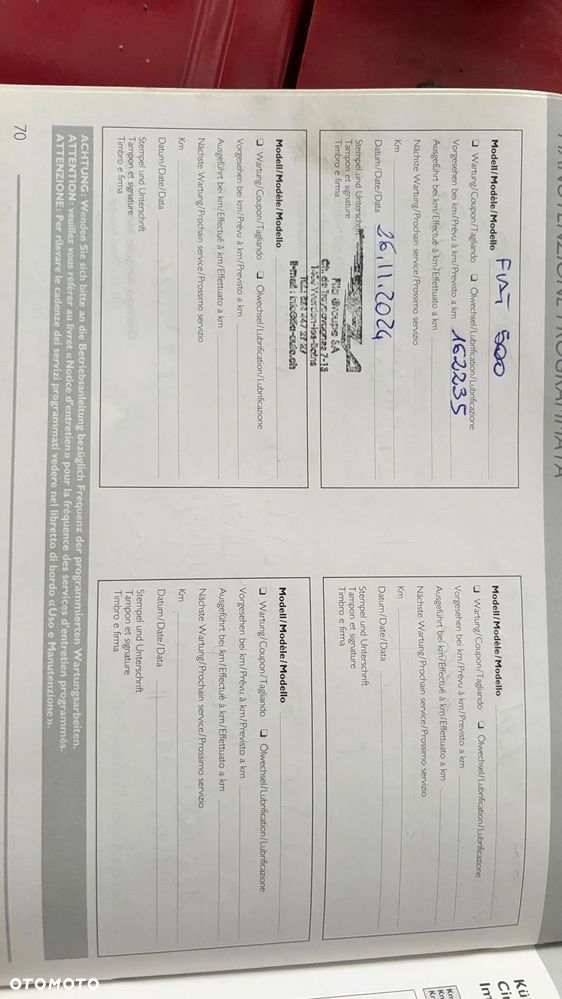 MANUTENZIONE PROGRAMMATA
Modell/Modèle/Modello FIAT 500
❑ Wartung/Coupon/Tagliando ❑ Ölwechsel/Lubrification/Lubrificazione
Vorgesehen bei km/Prévu à km/Previsto a km 162235
Ausgeführt bei km/Effectué à km/Effettuato a km
Nächste Wartung/Prochain service/Prossimo servizio
Km
Datum/Date/Data 26.11.2024
Stempel und Unterschrift
Tampon et signature
Timbro e firma
groupe SA
7-13
Modell/Modèle/Modello
❑ Wartung/Coupon/Tagliando ❑ Ölwechsel/Lubrification/Lubrificazione
Vorgesehen bei km/Prévu à km/Previsto a km
Ausgeführt bei km/Effectué à km/Effettuato a km
Nächste Wartung/Prochain service/Prossimo servizio
Km
Datum/Date/Data
Stempel und Unterschrift
Tampon et signature
Timbro e firma
Modell/Modèle/Modello
❑ Wartung/Coupon/Tagliando ❑ Ölwechsel/Lubrification/Lubrificazione
Vorgesehen bei km/Prévu à km/Previsto a km
Ausgeführt bei km/Effectué à km/Effettuato a km
Nächste Wartung/Prochain service/Prossimo servizio
Km
Datum/Date/Data
Stempel und Unterschrift
Tampon et signature
Timbro e firma
Modell/Modèle/Modello
❑ Wartung/Coupon/Tagliando ❑ Ölwechsel/Lubrification/Lubrificazione
Vorgesehen bei km/Prévu à km/Previsto a km
Ausgeführt bei km/Effectué à km/Effettuato a km
Nächste Wartung/Prochain service/Prossimo servizio
Km
Datum/Date/Data
Stempel und Unterschrift
Tampon et signature
Timbro e firma
ACHTUNG: Wenden Sie sich bitte an die Betriebsanleitung bezüglich Frequenz der programmierten Wartungsarbeiten.
ATTENTION: veuillez vous référer au livret «Notice d'entretien» pour la fréquence des services d'entretien programmés.
ATTENZIONE: Per rilevare le cadenze dei servizi programmati vedere nel libretto di bordo «Uso e Manutenzione».
70
OTOMOTO